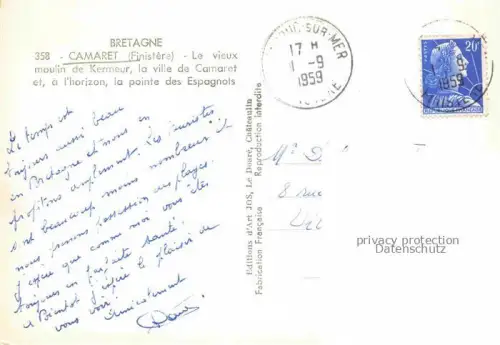 BRETAGNE
358 - CAMARET (Finistère) - Le vieux
moulin de Kermeur, la ville de Camaret
et, à l'horizon, la pointe des Espagnols
Le temps est
toujours aussi beau
en Bretagne et nous en
profitons amplement. Les touristes
sont beaucoup moins nombreux et
nous prenons possession des plages.
J'espère que comme moi vous êtes
toujours en parfaite santé.
A Bientôt j'espère le plaisir de
vous voir. Amicalement
Editions d'Art JOS, Le Doaré, Châteaulin
Fabrication Française Reproduction interdite
SUR-MER
17 H
1-9
1959
20F
1959
8 rue
privacy protection
Datenschutz